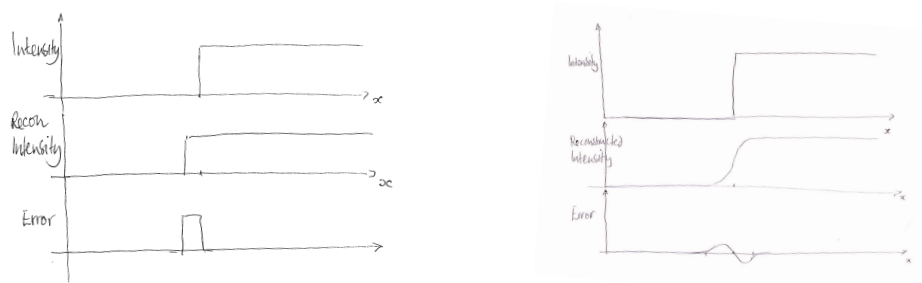 Intensity
x
Recon
Intensity
x
Error
Intensity
x
Reconstructed
Intensity
x
Error
x